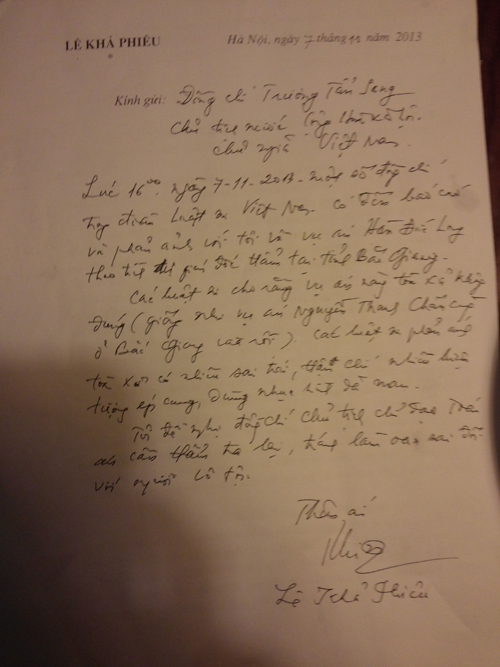 LÊ KHẢ PHIÊU
Hà Nội, ngày 7 tháng 11 năm 2013
Kính gửi: Đồng chí Trương Tấn Sang
Chủ tịch nước Cộng hòa xã hội
chủ nghĩa Việt Nam.
Lúc 16 00 ngày 7-11-2013 một số đồng chí
trong đoàn luật sư Việt Nam có đến báo cáo
và phản ánh với tôi về vụ án Hàn Đức Long
theo thủ tục giám đốc thẩm tại tỉnh Bắc Giang.
Các luật sư cho rằng vụ án này tòa xử không
đúng (giống như vụ án Nguyễn Thanh Chấn cũng
ở Bắc Giang vừa rồi). Các luật sư phản ánh
tòa xử có nhiều sai trái, thậm chí nhiều hiện
tượng ép cung, dùng nhục hình dã man.
Tôi đề nghị đồng chí Chủ tịch chỉ đạo Tòa
án cần thẩm tra lại, tránh làm oan sai đối
với người vô tội.
Thân ái
Lê Khả Phiêu